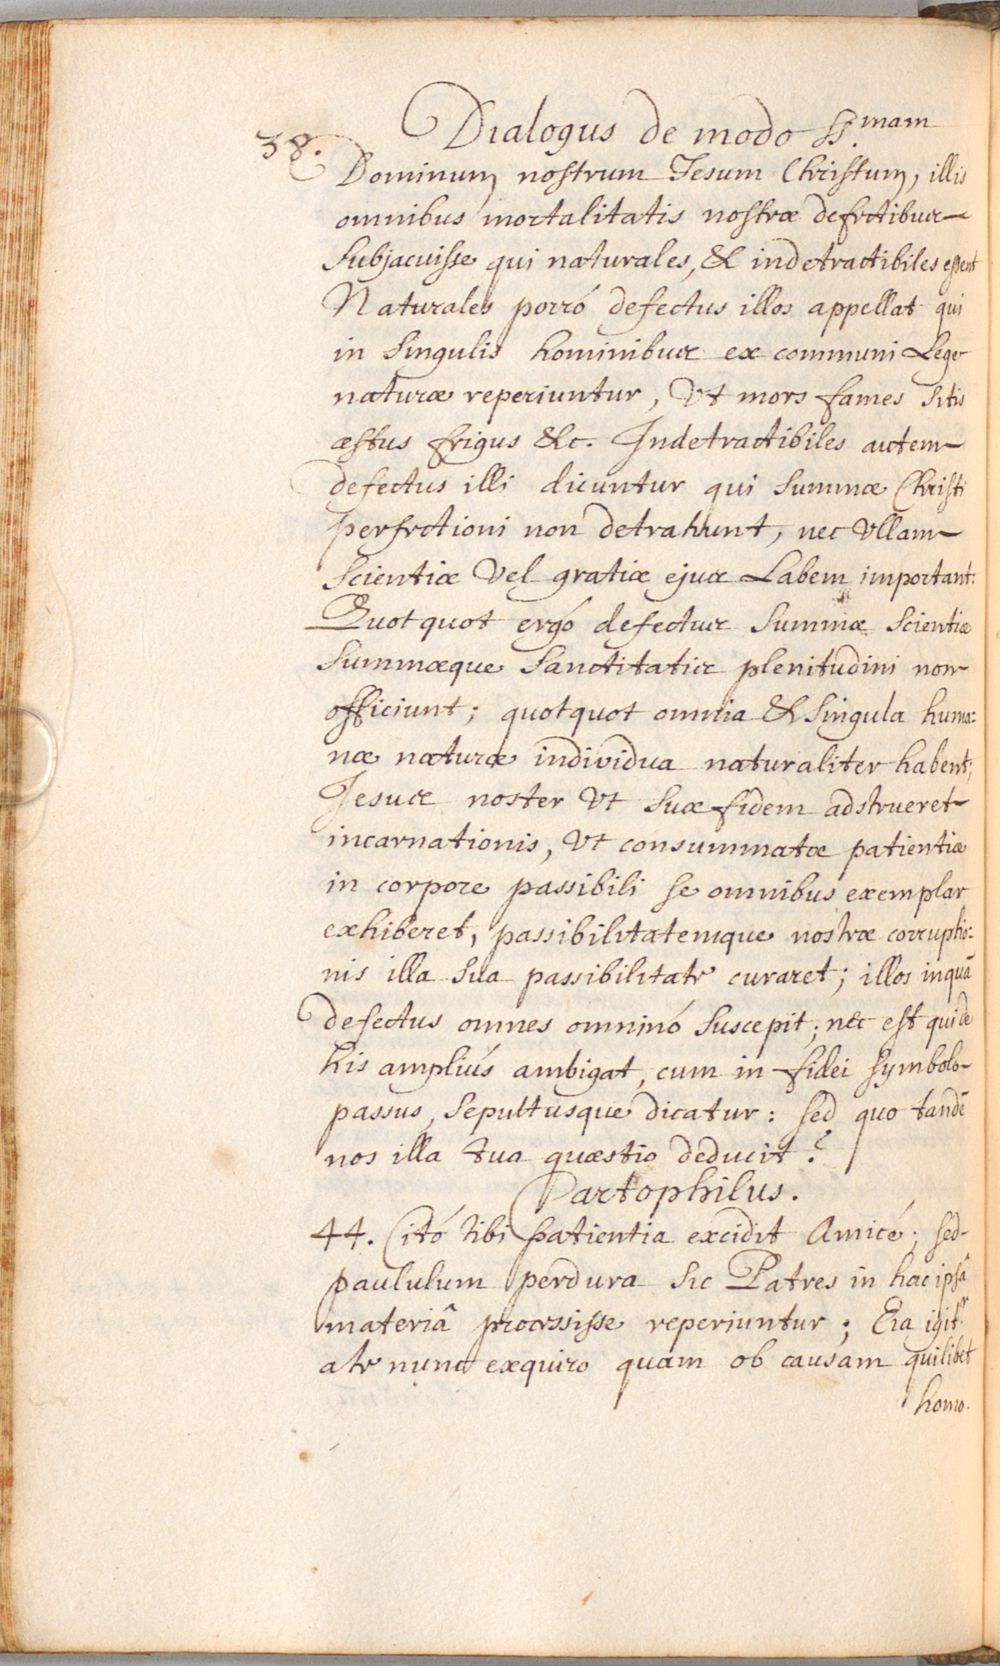 38.
Dialogus de modo SS.mam
Dominum nostrum Jesum Christum, illis
omnibus mortalitatis nostræ defectibus
subjacuisse qui naturales, & indetractibiles essent
Naturales porró defectus illos appellat qui
in singulis hominibus ex communi Lege
naturæ reperiuntur, Vt mors fames sitis
æstus frigus &c. Indetractibiles autem
defectus illi dicuntur qui summæ Christi
perfectioni non detrahunt, nec Vllam
scientiæ Vel gratiæ ejus Labem important:
Quotquot ergó defectus summæ scientiæ
summæque sanctitatis plenitudini non
officiunt; quotquot omnia & singula huma:
næ naturæ individua naturaliter habent,
Jesus noster Vt suæ fidem adstrueret
incarnationis, Vt consummatæ patientiæ
in corpore passibili se omnibus exemplar
exhiberet, passibilitatemque nostræ corruptio:
nis illa sua passibilitate curaret; illos inquā
defectus omnes omninó suscepit; nec est qui de
his ampliús ambigat, cum in fidei symbolo
passus, sepultusque dicatur: sed quo tandē
nos illa tua quæstio deducit?
Partophilus.
44. Citó tibi patientia excidit Amicé; sed
paululum perdura sic Patres in hac ipsâ
materiâ processisse reperiuntur; Eia igitr
a te nunc exquiro quam ob causam quilibet
homo.